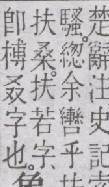 楚辭注史記
騷。總余轡乎扶
扶桑。扶若字
卽榑叒字也。